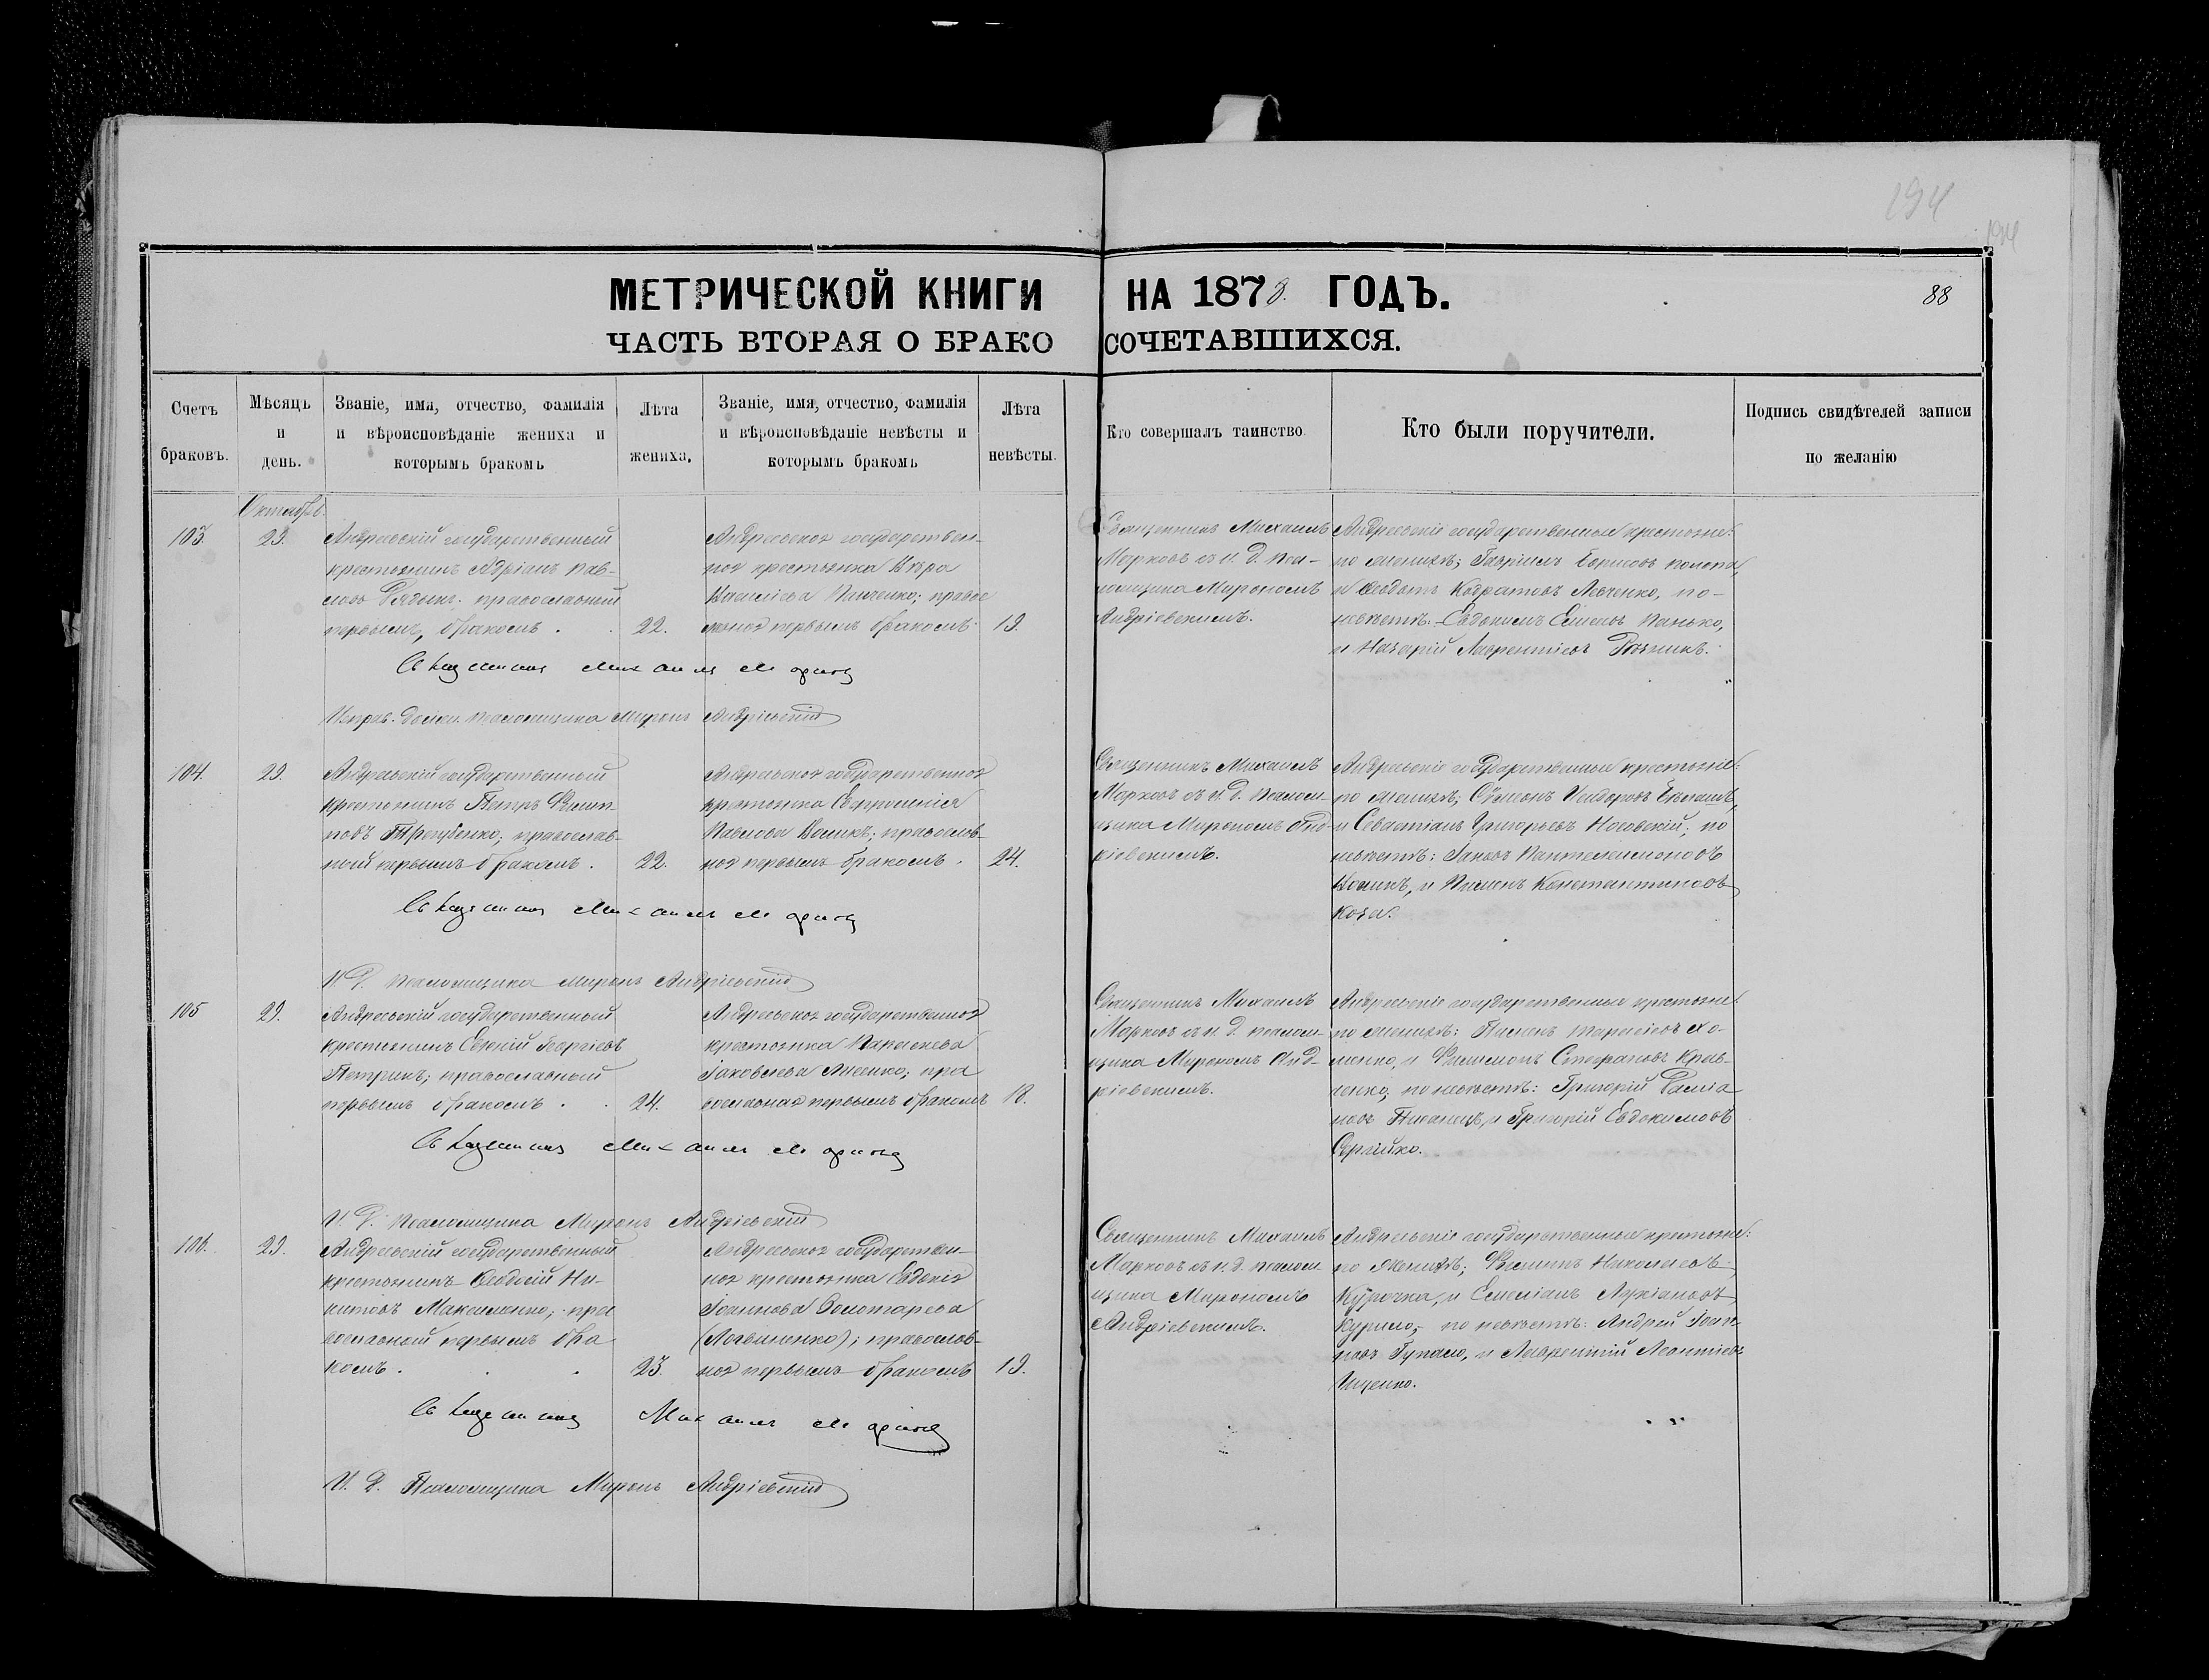 194
194
МЕТРИЧЕСКОЙ КНИГИ НА 1878 ГОДЪ.
88
ЧАСТЬ ВТОРАЯ О БРАКОСОЧЕТАВШИХСЯ.
Счетъ браковъ.
Мѣсяцъ и день.
Званіе, имя, отчество, фамилія
и вѣроисповѣданіе жениха и
которымъ бракомъ
Лѣта жениха.
Званіе, имя, отчество, фамилія
и вѣроисповѣданіе невѣсты и
которымъ бракомъ
Лѣта невѣсты.
Кто совершалъ таинство
Кто были поручители.
Подпись свидѣтелей записи
по желанію
Октябрь
103
29.
Андреевскій государственный
крестьянинъ Адріанъ Пав-
ловъ православный
первымъ бракомъ.
22.
Андреевская государствен-
ная крестьянка Вѣра
Василіева Панченко; правос
лавная первымъ бракомъ
19.
Священникъ Михаилъ
Марковъ съ и. д. пса-
ломщика Мирономъ
Андріевскимъ.
Андреевскіе государственные крестьяне:
по женихѣ; Гавріилъ
и Ѳеодотъ Левченко, по
невѣстѣ: Евдокимъ Панько,
и Назарій Лаврентіевъ
Священникъ Михаилъ Марковъ
Исправ. долж. Псаломщика Миронъ Андріевскій
104.
29.
Андреевскій государственный
крестьянинъ Петръ Филип-
повъ православ-
ный первымъ бракомъ.
22.
Андреевская государственная
крестьянка Евфросинія
Павлова православ-
ная первымъ бракомъ.
24.
Священникъ Михаилъ
Марковъ съ и. д. псалом-
щика Мирономъ Анд-
ріевскимъ.
Андреевскіе государственные крестьяне:
по женихѣ; Сѵмеонъ Исидоровъ
и Севастіанъ Григорьевъ Носовскій; по
невѣстѣ: Іаковъ Пантелеимоновъ
и Пименъ Константиновъ
Коза.
Священникъ Михаилъ Марковъ
И. Д. Псаломщика Миронъ Андріевскій
105
29.
Андреевскій государственный
крестьянинъ Георгіевъ
Петрикъ; православный
первымъ бракомъ.
24.
Андреевская государственная
крестьянка Параскева
Іаковлева пра
вославная первымъ бракомъ
18.
Священникъ Михаилъ
Марковъ съ и. д. псалом-
щика Мирономъ Анд-
ріевскимъ.
Андреевскіе государственные крестьяне:
по женихѣ: Пименъ Тарасіевъ Хо-
менко, и Филимонъ Стефановъ Крав-
ченко, по невѣстѣ: Григорій
и Григорій Евдокимовъ
Сергійко.
Священникъ Михаилъ Марковъ
И. Д. Псаломщика Миронъ Андріевскій
106.
29.
Андреевскій государственный
крестьянинъ Ѳеодосій Ни-
китовъ Максименко; пра
вославный первымъ бра
комъ.
23.
Андреевская государствен-
ная крестьянка Евдокія
Іоаннова Золотарева
(Логвиненко); православ-
ная первымъ бракомъ
19.
Священникъ Михаилъ
Марковъ съ и. д. псалом-
щика Мирономъ
Андріевскимъ.
Андреевскіе государственные крестьяне:
по женихѣ; Филиппъ Николаевъ
Курочка, и Емеліанъ Лукіановъ
Курило, по невѣстѣ: Андрей Іоан-
новъ и Лаврентій Леонтіевъ
Ищенко.
Священникъ Михаилъ Марковъ
И. Д. Псаломщика Миронъ Андріевскій